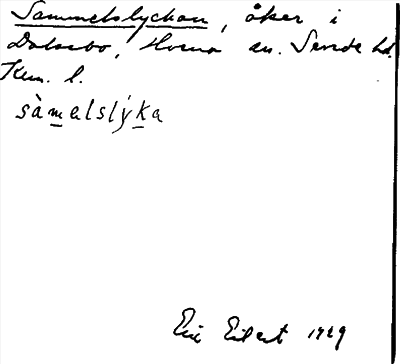 Sammelslyckan, åker i
Dalsebo, Horna sn. Sunde hd.
Km. l.
sàmelslýka
Eric Eilert 1929